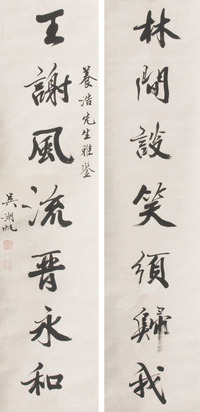 林間設笑須歸我
養浩先生雅鑒
王謝風流晉永和
吳湖帆